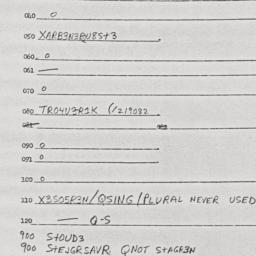 040 0
050 XAPB3N3BU8S+3
060 0
061 —
070 0
080 TRO4U3R1K (/219032
081
090 0
092 0
100 0
110 X3505P3N/QSING/PLURAL NEVER USED
120 — Q-S
900 S+OUD3
900 S+EJGRSAVR QNOT S+AGR3N